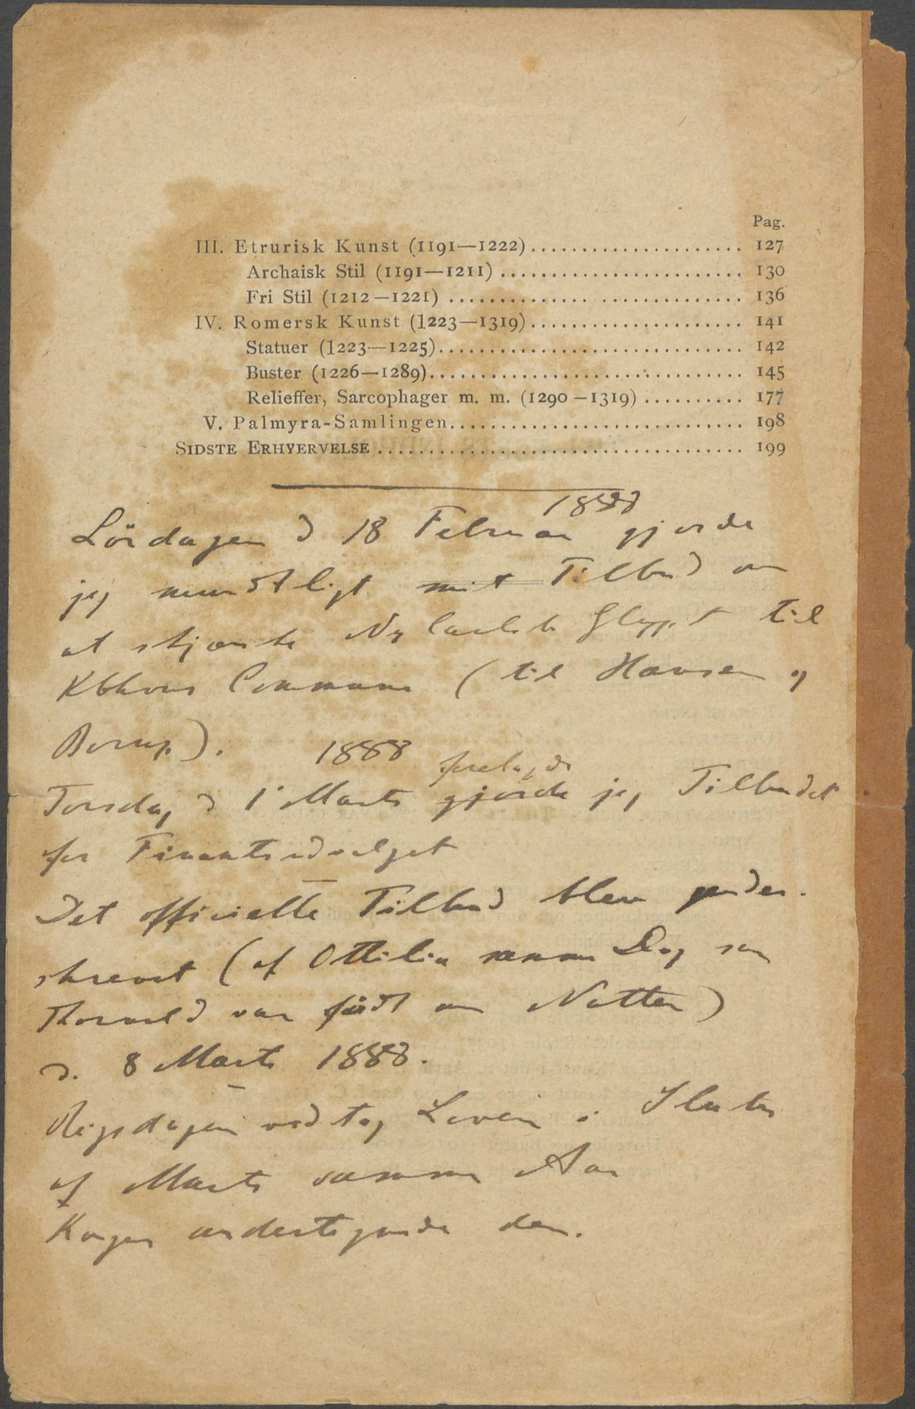 Pag.
III. Etrurisk Kunst (1191—1222) ..................... 127
Archaisk Stil (1191—1211) ........................ 130
Fri Stil (1212—1221) ............................. 136
IV. Romersk Kunst (1223—1319) ..................... 141
Statuer (1223—1225) .............................. 142
Buster (1226—1289) ............................... 145
Relieffer, Sarcophager m. m. (1290—1319) .......... 177
V. Palmyra-Samlingen ............................. 198
SIDSTE ERHVERVELSE .................................... 199
1888
Lördagen d 18 Februar gjorde
jeg mundtligt mit Tilbud om
at skjænke Ny Carlsb Glypt til
Kbhvns Commune (til Hansen og
Borup).
1888
forelagde
Torsdag d 1' Marts gjorde jeg Tilbudet
for Finantsudvalget
Det officielle Tilbud blev under-
skrevet (af Ottilia samme Dag som
Thorvald var født om Natten)
d. 8 Marts 1888.
Rigsdagen vedtog Loven i Slutn
af Marts samme Aar
Kongen undertegnede den.